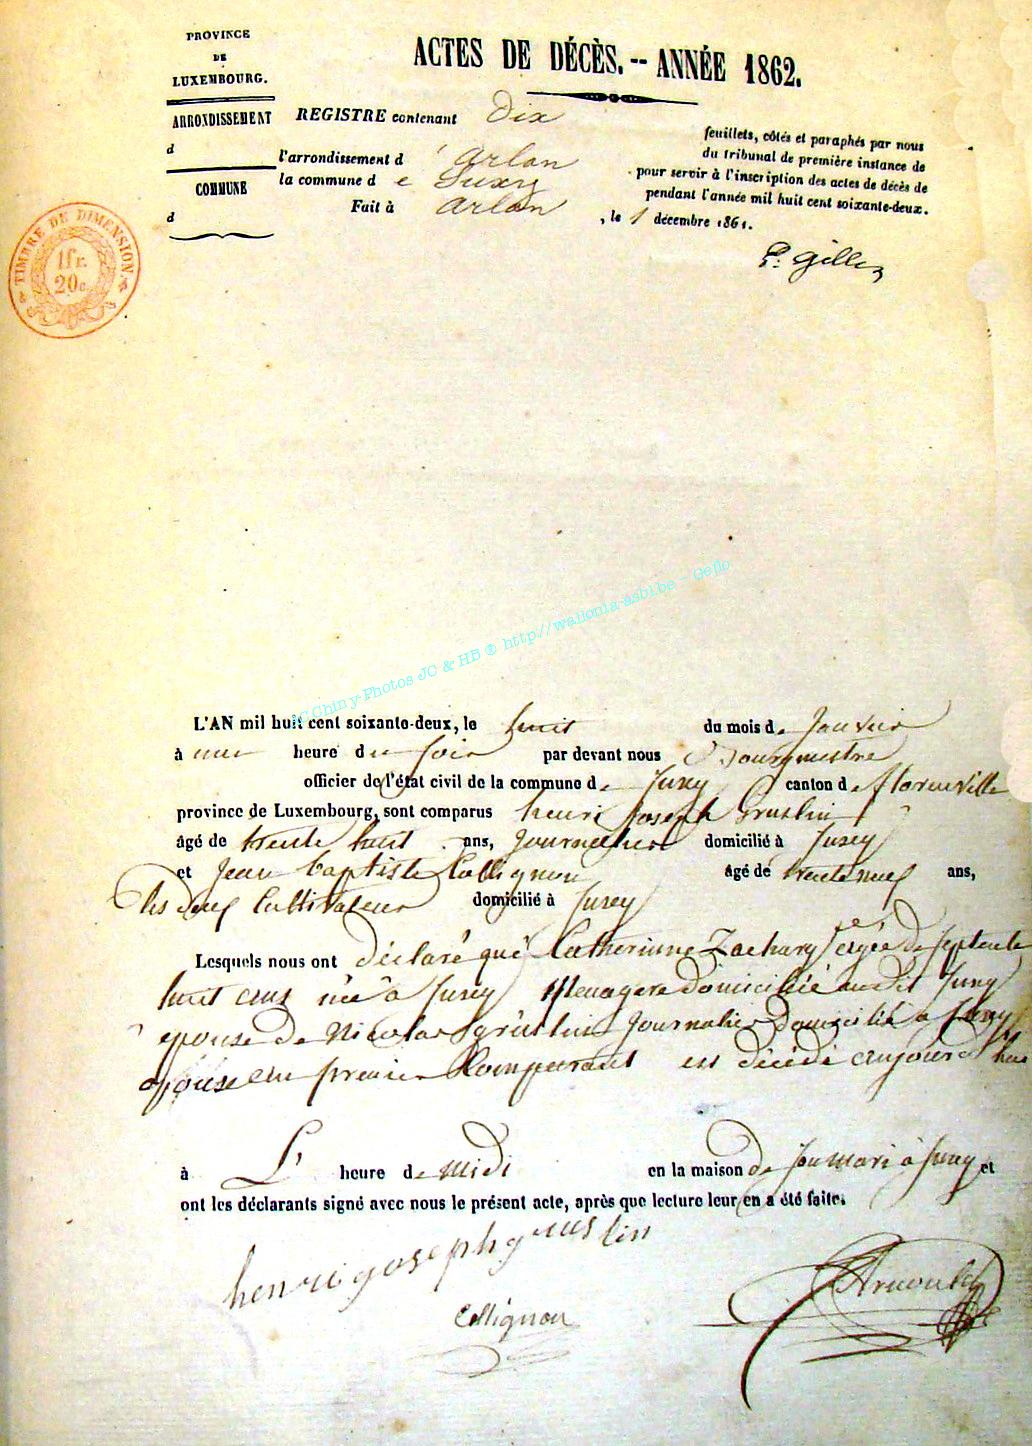 PROVINCE
DE
LUXEMBOURG.
ACTES DE DÉCÈS. -- ANNÉE 1862.
ARRONDISSEMENT
d
COMMUNE
d
REGISTRE contenant Dix
feuillets, côtés et paraphés par nous
du tribunal de première instance de
l'arrondissement d' Arlon
pour servir à l'inscription des actes de décès de
la commune de Suxy
pendant l'année mil huit cent soixante-deux.
Fait à Arlon
, le 1 décembre 1861.
P. Gilles
TIMBRE DE DIMENSION.
1 fr.
20 c.
JC Chiny-Photos JC & HB ® http://wallonia-asbl.be - Geflo
L'AN mil huit cent soixante-deux, le huit du mois de Janvier
à une heure du soir par devant nous Bourgmestre
officier de l'état civil de la commune de Suxy canton de florenville
province de Luxembourg, sont comparus henri Joseph Gruslin
âgé de trente huit ans, Journallier domicilié à Suxy
et Jean baptiste Collignon âgé de trente neuf ans,
Cultivateur domicilié à Suxy
Lesquels nous ont déclaré que Catherinne Zachary agée de septente
huit ans née à Suxy Menagere domiciliée audit Suxy
epouse de Nicolas gruslin Journalier Domicilié a Suxy
premier Comparant est décédé aujourd hui
à L' heure de midi en la maison de son mari à Suxy et
ont les déclarants signé avec nous le présent acte, après que lecture leur en a été faite.
henri joseph gruslin
Collignon
Arnould